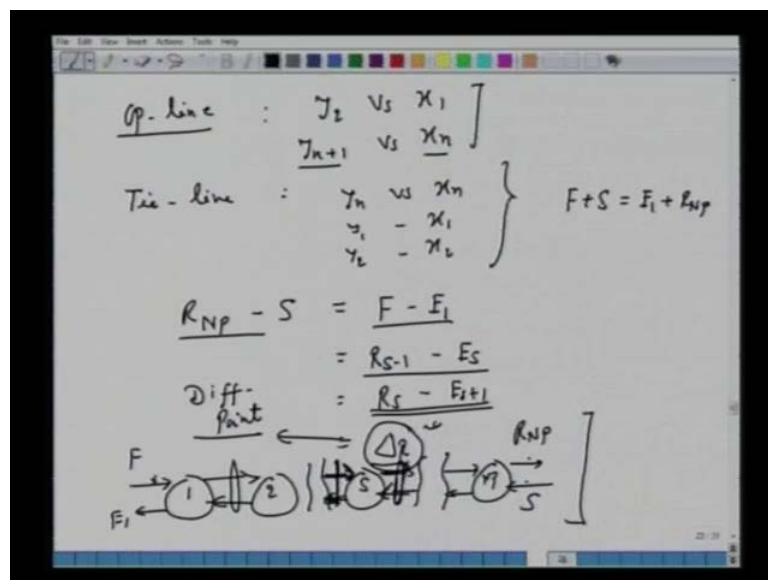 File Edit View Insert Actions Tools Help
Op-line : y2 vs x1
yn+1 vs xn
Tie-line : yn vs xn
y1 - x1
y2 - x2
F+S = E1 + RNp
RNp - S = F - E1
= Rs-1 - Es
= Rs - Es+1
Diff- Point = ΔR
F 1 2 s n RNp
E1 S